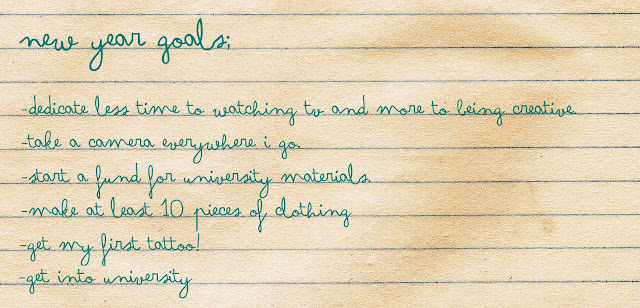 new year goals;
-dedicate less time to watching tv and more to being creative.
-take a camera everywhere i go.
-start a fund for university materials.
-make at least 10 pieces of clothing
-get my first tattoo!
-get into university